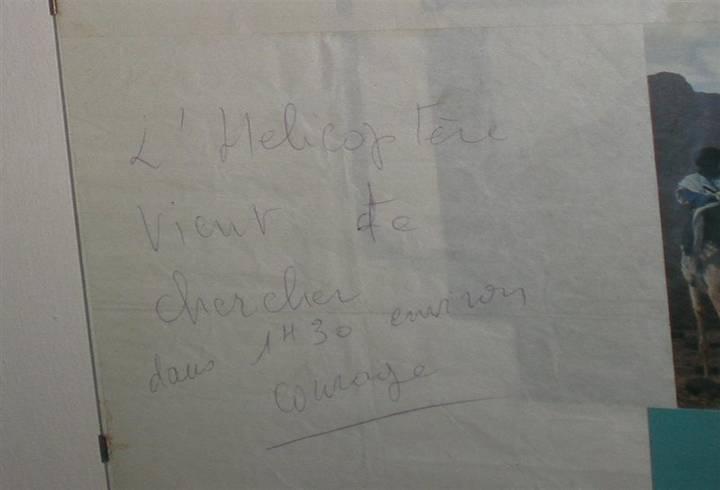 L'Hélicoptère
vient te
chercher
dans 1H30 environ
courage